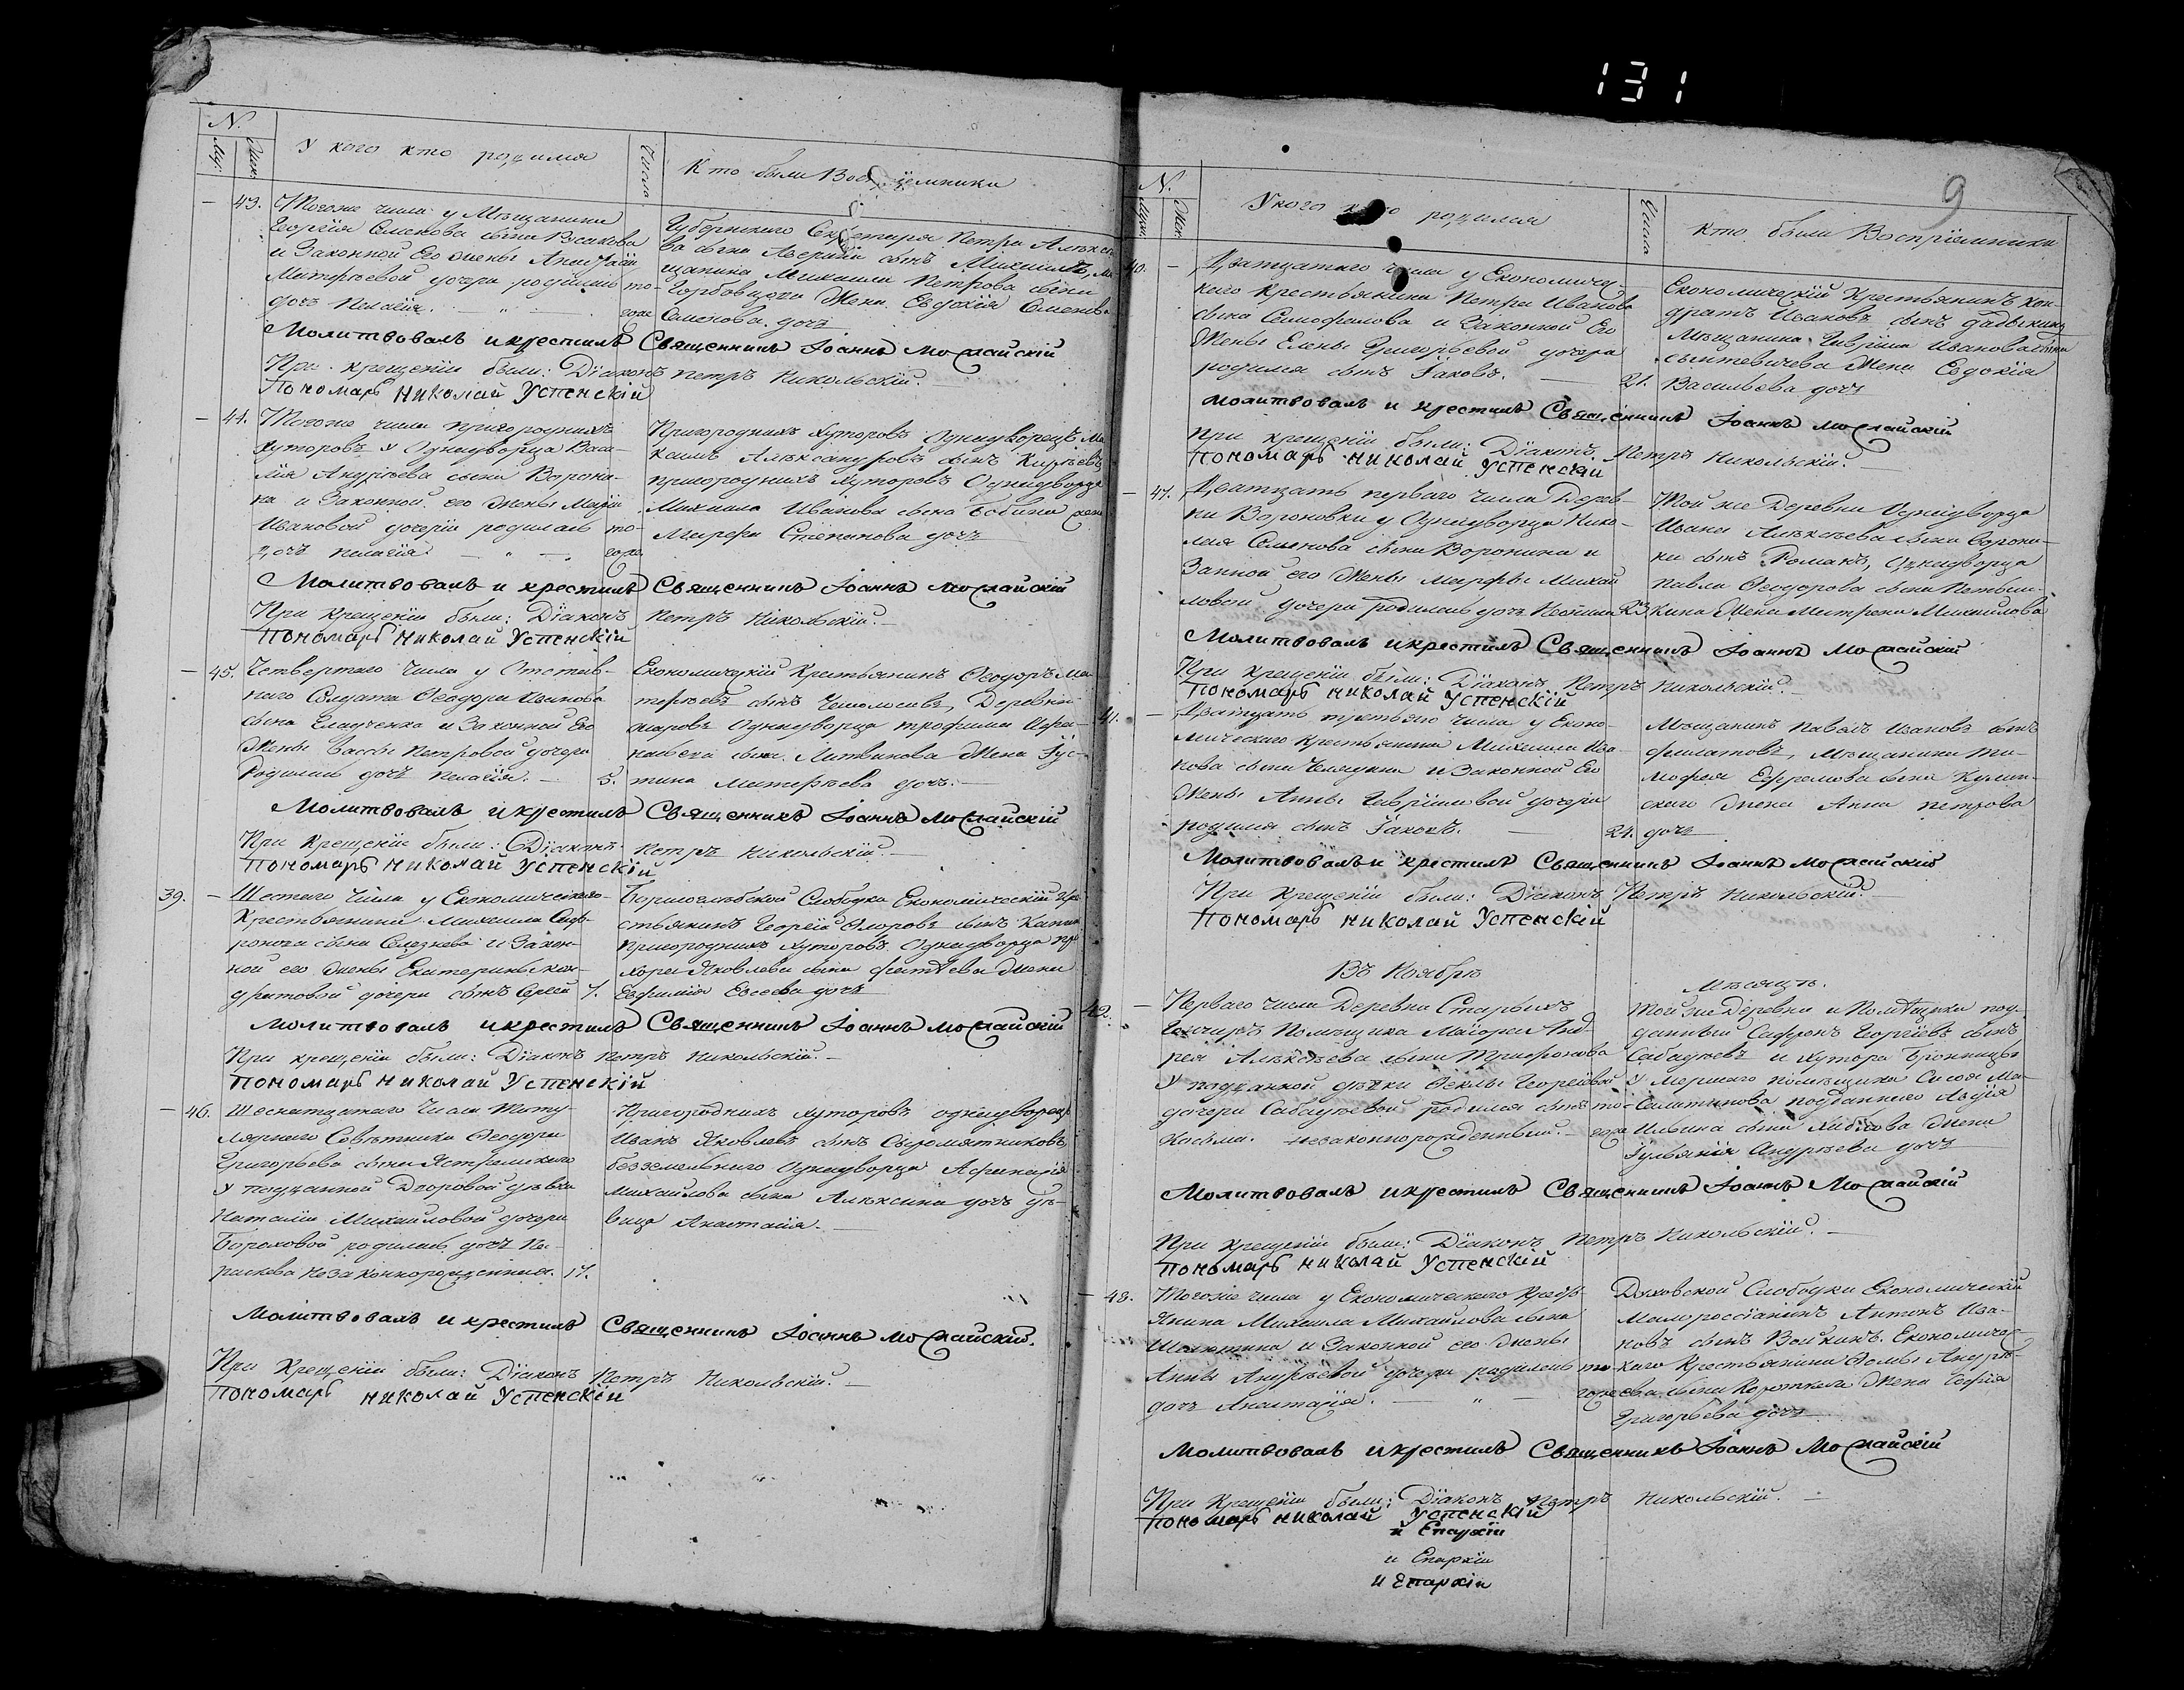 131
N.
Муж. Жен.
У кого кто родился
Числа
Кто были Воспрiемники
43. Тогоже числа у Мѣщанина
Георгiя Семенова сына Русакова
и Законной Его жены
Матфѣевой дочери родилась
дочь Пелагiя. того
Губернскаго Секретаря Петра
ва сына Аверкiй сынъ Михаилъ,
щанина Михаила Петрова сына
Горбовцова Жена Евдокiя Семенова
Семенова дочь
Молитвовалъ и крестилъ Священникъ Iоаннъ Можайскiй
При крещенiи были: Дiаконъ Петръ Никольскiй.
Пономарь Николай Успенскiй
44. Тогоже числа пригородныхъ
хуторовъ у Однодворца Васи-
лiя Андрѣева сына Ворони-
на и Законной его жены Марiи
Ивановой дочери родилась то-
дочь Пелагiя. гоже
Пригородныхъ хуторовъ Однодворецъ Ма
ксимъ Алѣксандровъ сынъ Кирѣевъ
пригородныхъ хуторовъ Однодворца
Михаила Иванова сына Бобина жена
Марфа Степанова дочь
Молитвовалъ и крестилъ Священникъ Iоаннъ Можайскiй
При крещенiи были: Дiаконъ Петръ Никольскiй.
Пономарь Николай Успенскiй
45. Четвертаго числа у Отстав-
наго Солдата Ѳеодора Иванова
сына и Законной Его
Жены Вассы Петровой дочери
Родилась дочь Пелагiя. 5.
Економическiй Крестьянинъ Ѳеодоръ Ма-
тѳѣевъ сынъ Деревни
Однодворца Трофима
сына Литвинова Жена Iус-
тина Матѳѣева дочь.
Молитвовалъ и крестилъ Священникъ Iоаннъ Можайскiй
При Крещенiи были: Дiаконъ Петръ Никольскiй.
Пономарь Николай Успенскiй
39. Шестаго Числа у Економическаго
Крестьянина Михаила Соф-
ронова сына Селезнева и Закон-
ной его жены Екатерины Кон-
дратовой дочери сынъ Сергѣй 7.
Борисоглѣбской Слободки Економическiй Кре
стьянинъ Георгiй Ѳлоровъ сынъ
Пригородныхъ хуторовъ Однодворца Про
хора Яковлева сына Жена
Евфимiя Евсеева дочь
Молитвовалъ и крестилъ Священникъ Iоаннъ Можайскiй
При крещенiи были: Дiаконъ Петръ Никольскiй.
Пономарь Николай Успенскiй
46. Шеснатцатаго Числа Титу-
лярнаго Совѣтника Ѳеодора
Григорьева сына Ястремскаго
у подданной Дворовой дѣвки
Наталiи Михайловой дочери
Бороховой родилась дочь Па-
раскева Незаконнорожденная. 17.
Пригородныхъ хуторовъ однодворецъ
Иванъ Яковлевъ сынъ Сыромятниковъ,
безземельнаго Однодворца Афанасiя
Михайлова сына Алѣксина дочь дѣ-
вица Анастасiя.
Молитвовалъ и крестилъ Священникъ Iоаннъ Можайскiй.
При Крещенiи были: Дiаконъ Петръ Никольскiй.
Пономарь Николай Успенскiй
9
N.
Жен.
У кого кто родился
Числа
Кто были Воспрiемники
40. Дватцатаго числа у Економичес-
каго Крестьянина Петра Иванова
сына Самофалова и Законной Его
Жены Елены Григорьевой дочери
родился сынъ Iаковъ. 21.
Економическiй Крестьянинъ Кон-
дратъ Ивановъ сынъ
Мѣщанина Гаврiила Иванова сына
Жена Евдокiя
Васильева дочь
Молитвовалъ и крестилъ Священникъ Iоаннъ Можайскiй
При крещенiи были: Дiаконъ Петръ Никольскiй.
Пономарь Николай Успенскiй
47. Дватцать перваго числа Дерев-
ни Вороновки у Однодворца Нико-
лая Семенова сына Воронина и
Законной его Жены Марфы Михай
ловой дочери родилась дочь 23.
Той же Деревни Однодворца
Ивана Алѣксѣева сына Ворони-
на сынъ Романъ, Однодворца
Павла Ѳеодорова сына
кина Жена Матрена Михайлова
Молитвовалъ и крестилъ Священникъ Iоаннъ Можайскiй
При крещенiи были: Дiаконъ Петръ Никольскiй.
Пономарь Николай Успенскiй
41. Дватцать третьяго числа у Еконо-
мическаго Крестьянина Михаила Ива-
нова сына и Законной Его
Жены Анны Гаврiиловой дочери
родился сынъ Iаковъ. 24.
Мѣщанинъ Павелъ Ивановъ сынъ
Филатовъ, Мѣщанина Ти-
мофея Ефремова сына Кулин-
скаго Жена Анна Петрова
дочь
Молитвовалъ и крестилъ Священникъ Iоаннъ Можайскiй
При Крещенiи были: Дiаконъ Петръ Никольскiй.
Пономарь Николай Успенскiй
Въ Ноябрѣ
Мѣсяцѣ.
42. Перваго числа Деревни Старыхъ
Помѣщика Маiора Анд-
рея Алѣксѣева сына Трифонова
у подданной дѣвки Ѳеклы Георгiевой
дочери Сабадуевой родился сынъ то-
Косьма. незаконнорожденный. гоже
Той же Деревни и Помѣщика под-
данный Сафронъ Георгiевъ сынъ
Сабадуевъ и хутора Бронницы
умершаго помѣщика
подданнаго
Ильина сына Жена
Iульянiя Андрѣева дочь
Молитвовалъ и крестилъ Священникъ Iоаннъ Можайскiй
При Крещенiи были: Дiаконъ Петръ Никольскiй.
Пономарь Николай Успенскiй
48. Тогоже числа у Економическаго Кресть-
янина Михаила Михайлова сына
Шелютина и Законной его Жены
Анны Андрѣевой дочери родилась то-
дочь Анастасiя. гоже
Духовской Слободки Економическiй
Малороссiянинъ Антонъ Ива-
новъ сынъ Войкинъ. Економичес-
каго Крестьянина Ѳомы Андрѣ-
ева сына Жена Софiя
Григорьева дочь
Молитвовалъ и крестилъ Священникъ Iоаннъ Можайскiй
При Крещенiи были: Дiаконъ Петръ Никольскiй.
Пономарь Николай Успенскiй
и Епархiи
и Епархiи
и Епархiи